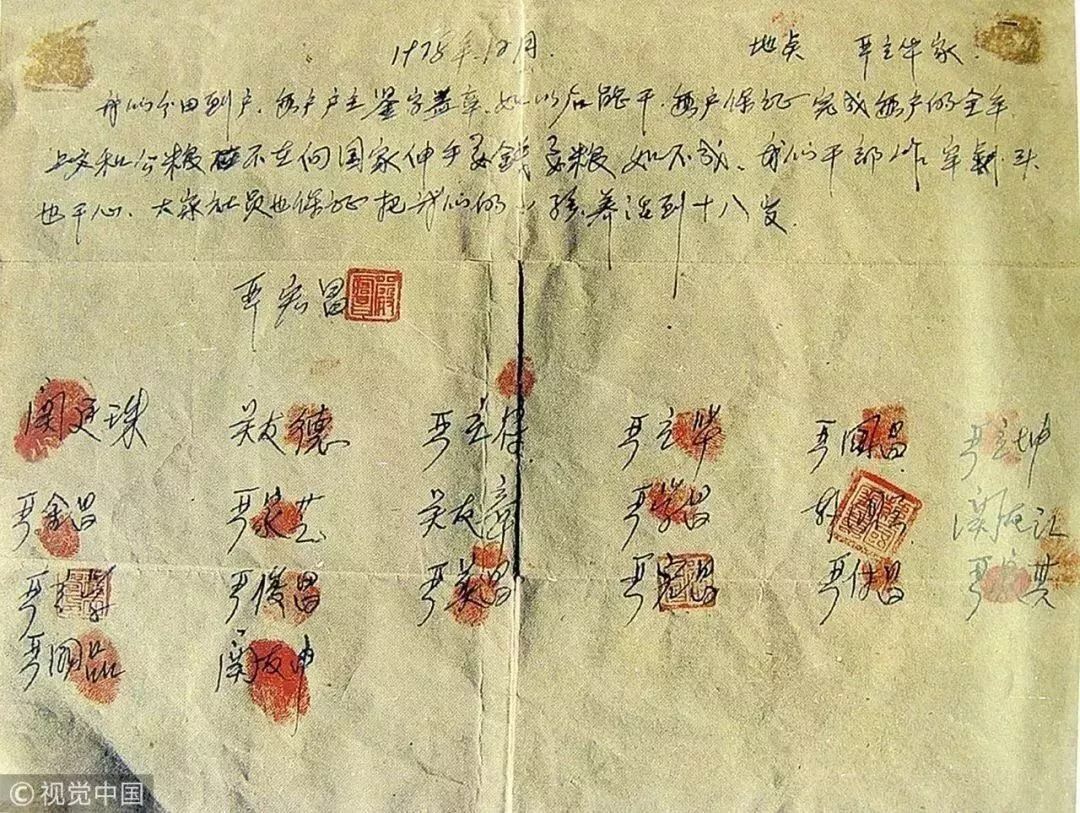 1978年12月. 地点 严立华家.
我们分田到户,每户户主鉴字盖章,如以后能干,每户保证完成每户的全年
上交和公粮不在向国家伸手要钱要粮 如不成,我们干部作牢刹头
也干心,大家社员也保证把我们的小孩养活到十八岁.
严宏昌
关廷珠 关友德 严立符 严立华 严国昌 严立坤
严金昌 严家芝 关友章 严学昌 韩国云 关友江
严立学 严俊昌 严美昌 严宏昌 严付昌 严家其
严国品 关友申
©视觉中国